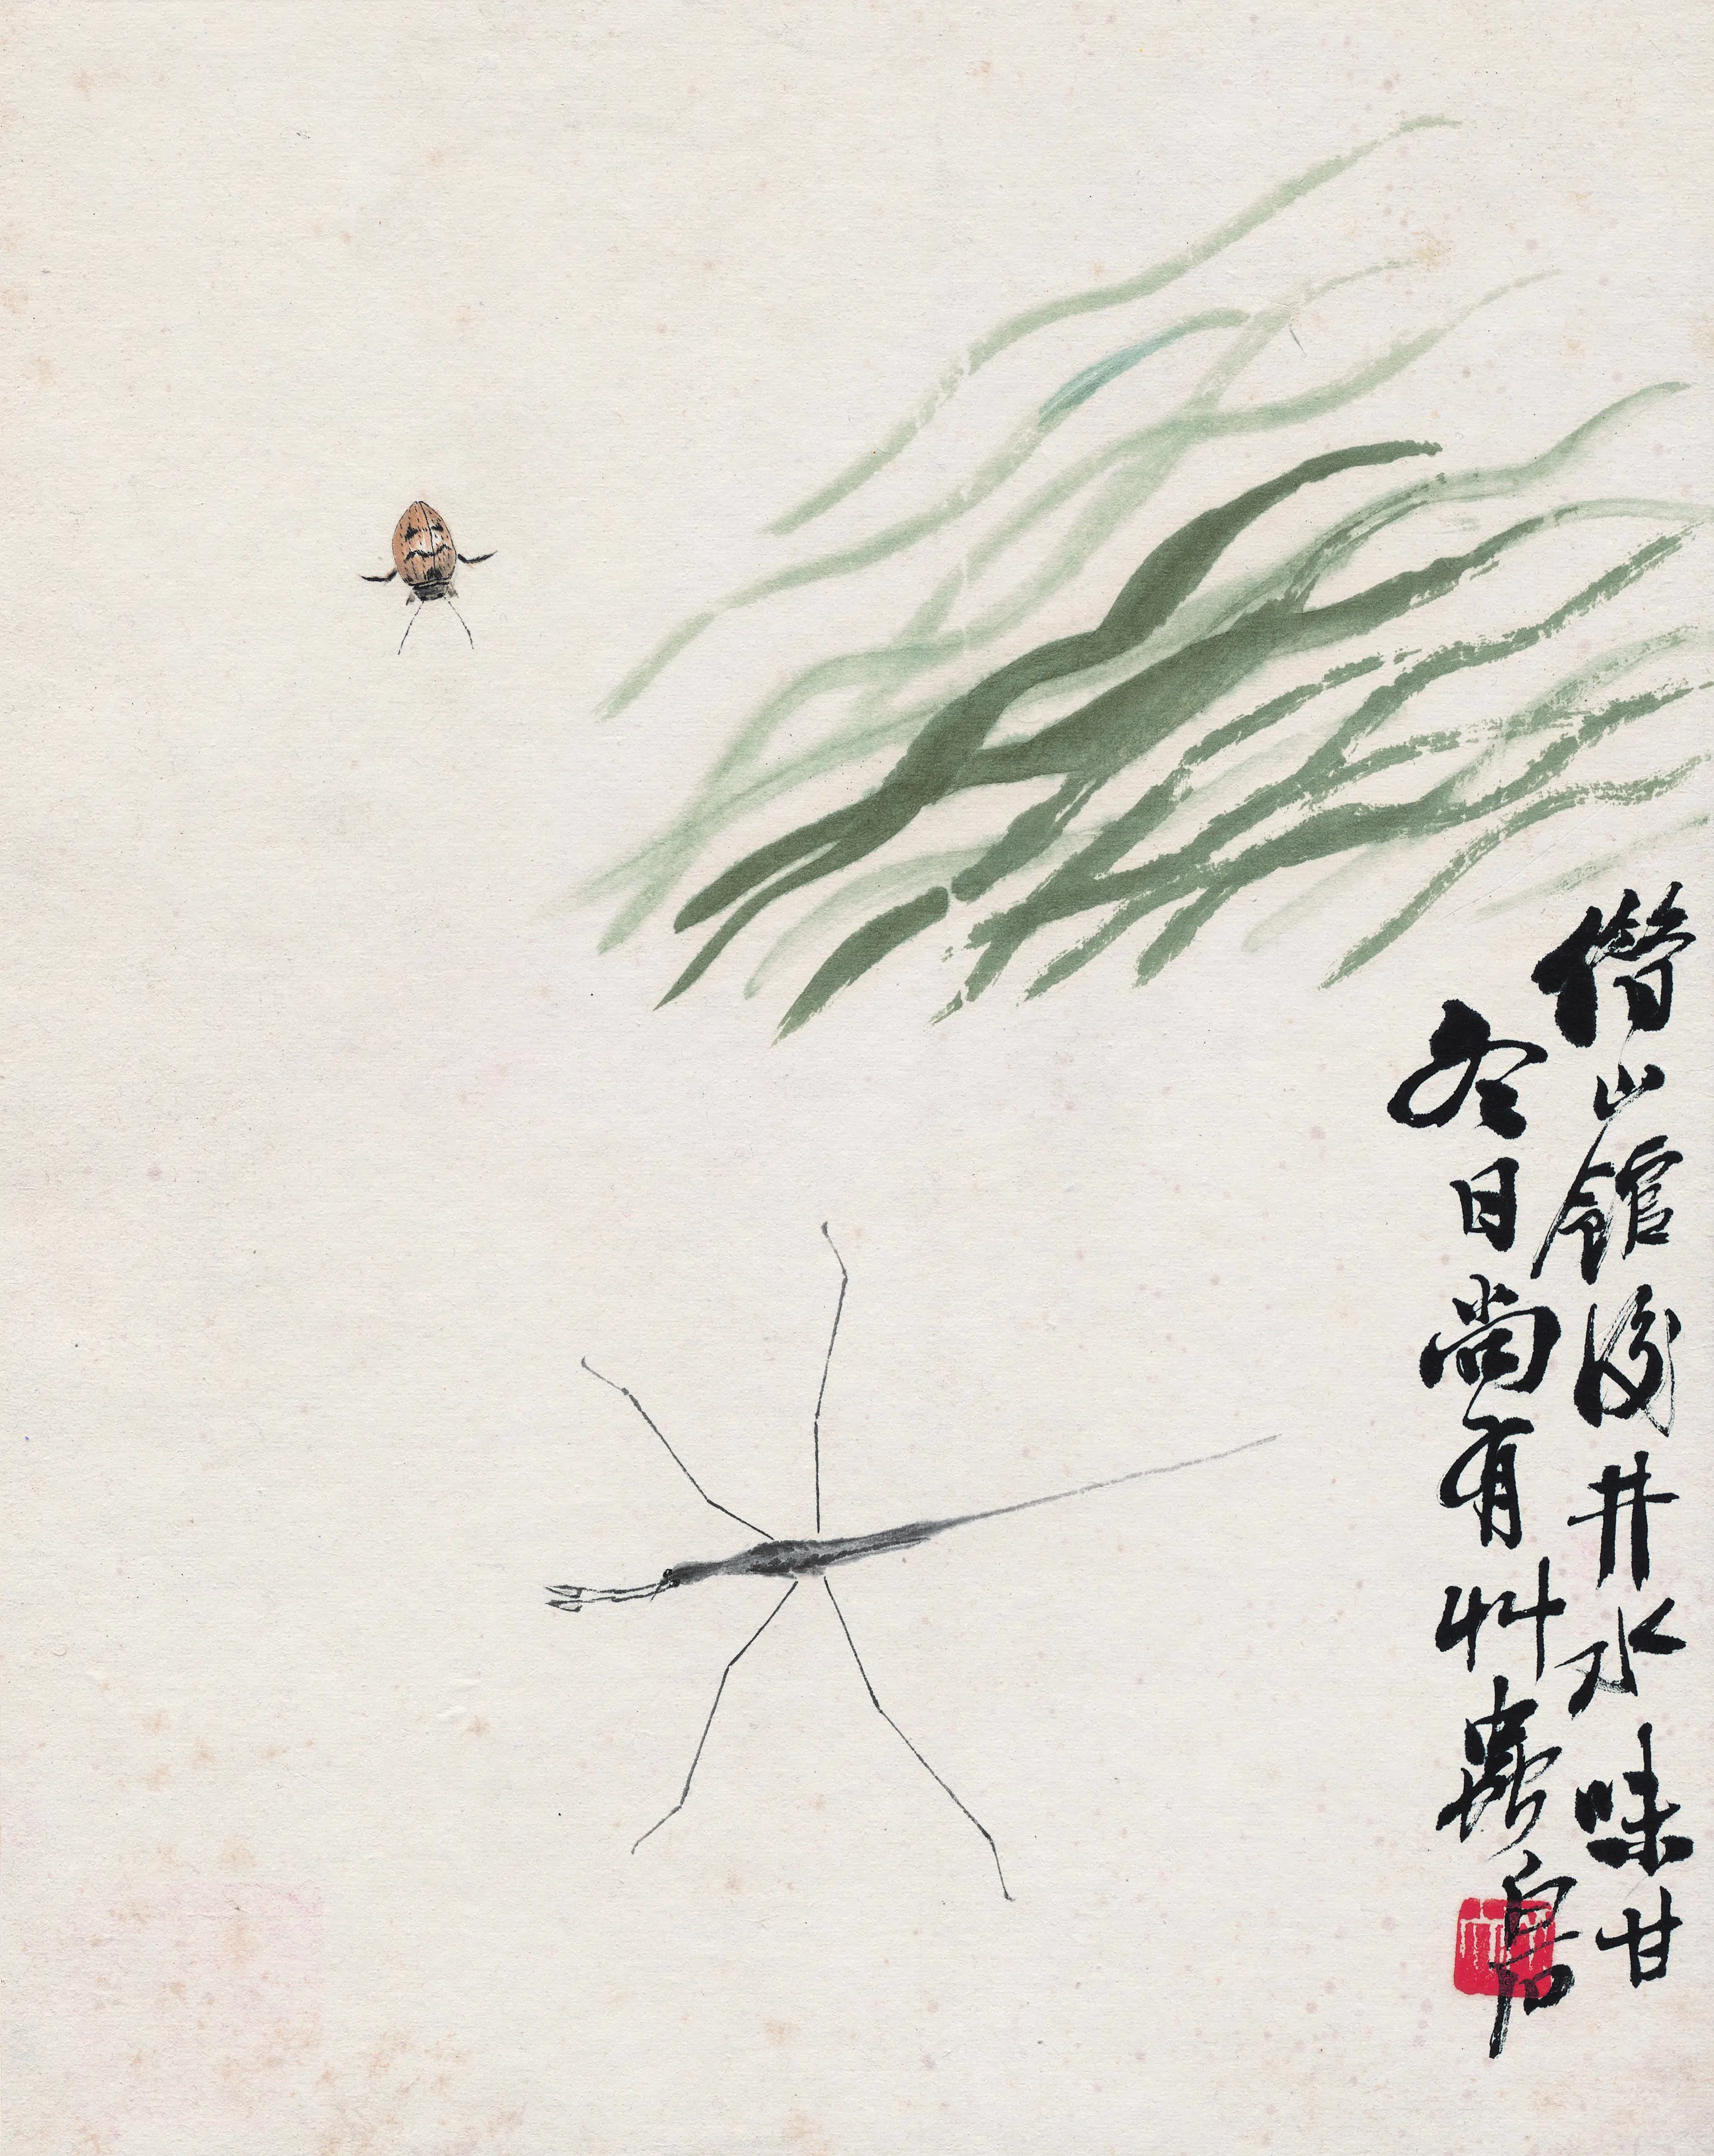 借山館後井水味甘
冬日尚有艸蟲白石